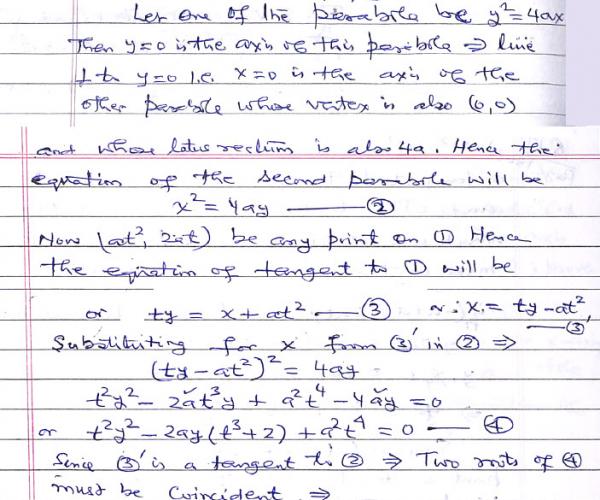 Let one of the parabola be y² = 4ax
Then y=0 is the axis of this parabola ⇒ line
⊥ to y=0 i.e. x=0 is the axis of the
other parabola whose vertex is also (0,0)
and whose latus rectum is also 4a. Hence the
equation of the second parabola will be
x² = 4ay —— ②
Now (at², 2at) be any print on ① Hence
the equation of tangent to ① will be
or ty = x + at² —— ③ ∴ x = ty - at², —— ③'
Substituting for x from ③' in ② ⇒
(ty - at²)² = 4ay
t²y² - 2at³y + a²t⁴ - 4ay = 0
or t²y² - 2ay(t³+2) + a²t⁴ = 0 —— ④
Since ③' is a tangent to ② ⇒ Two roots of ④
must be Coincident ⇒